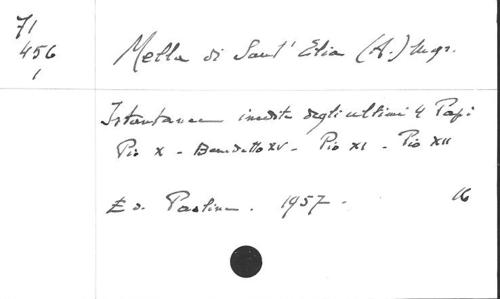 71
456
1
Mella di Sant' Elia (A.) Mgr.
Istantanee inedite degli ultimi 4 Papi
Pio X - Benedetto XV - Pio XI - Pio XII
Ed. Paoline. 1957. 16